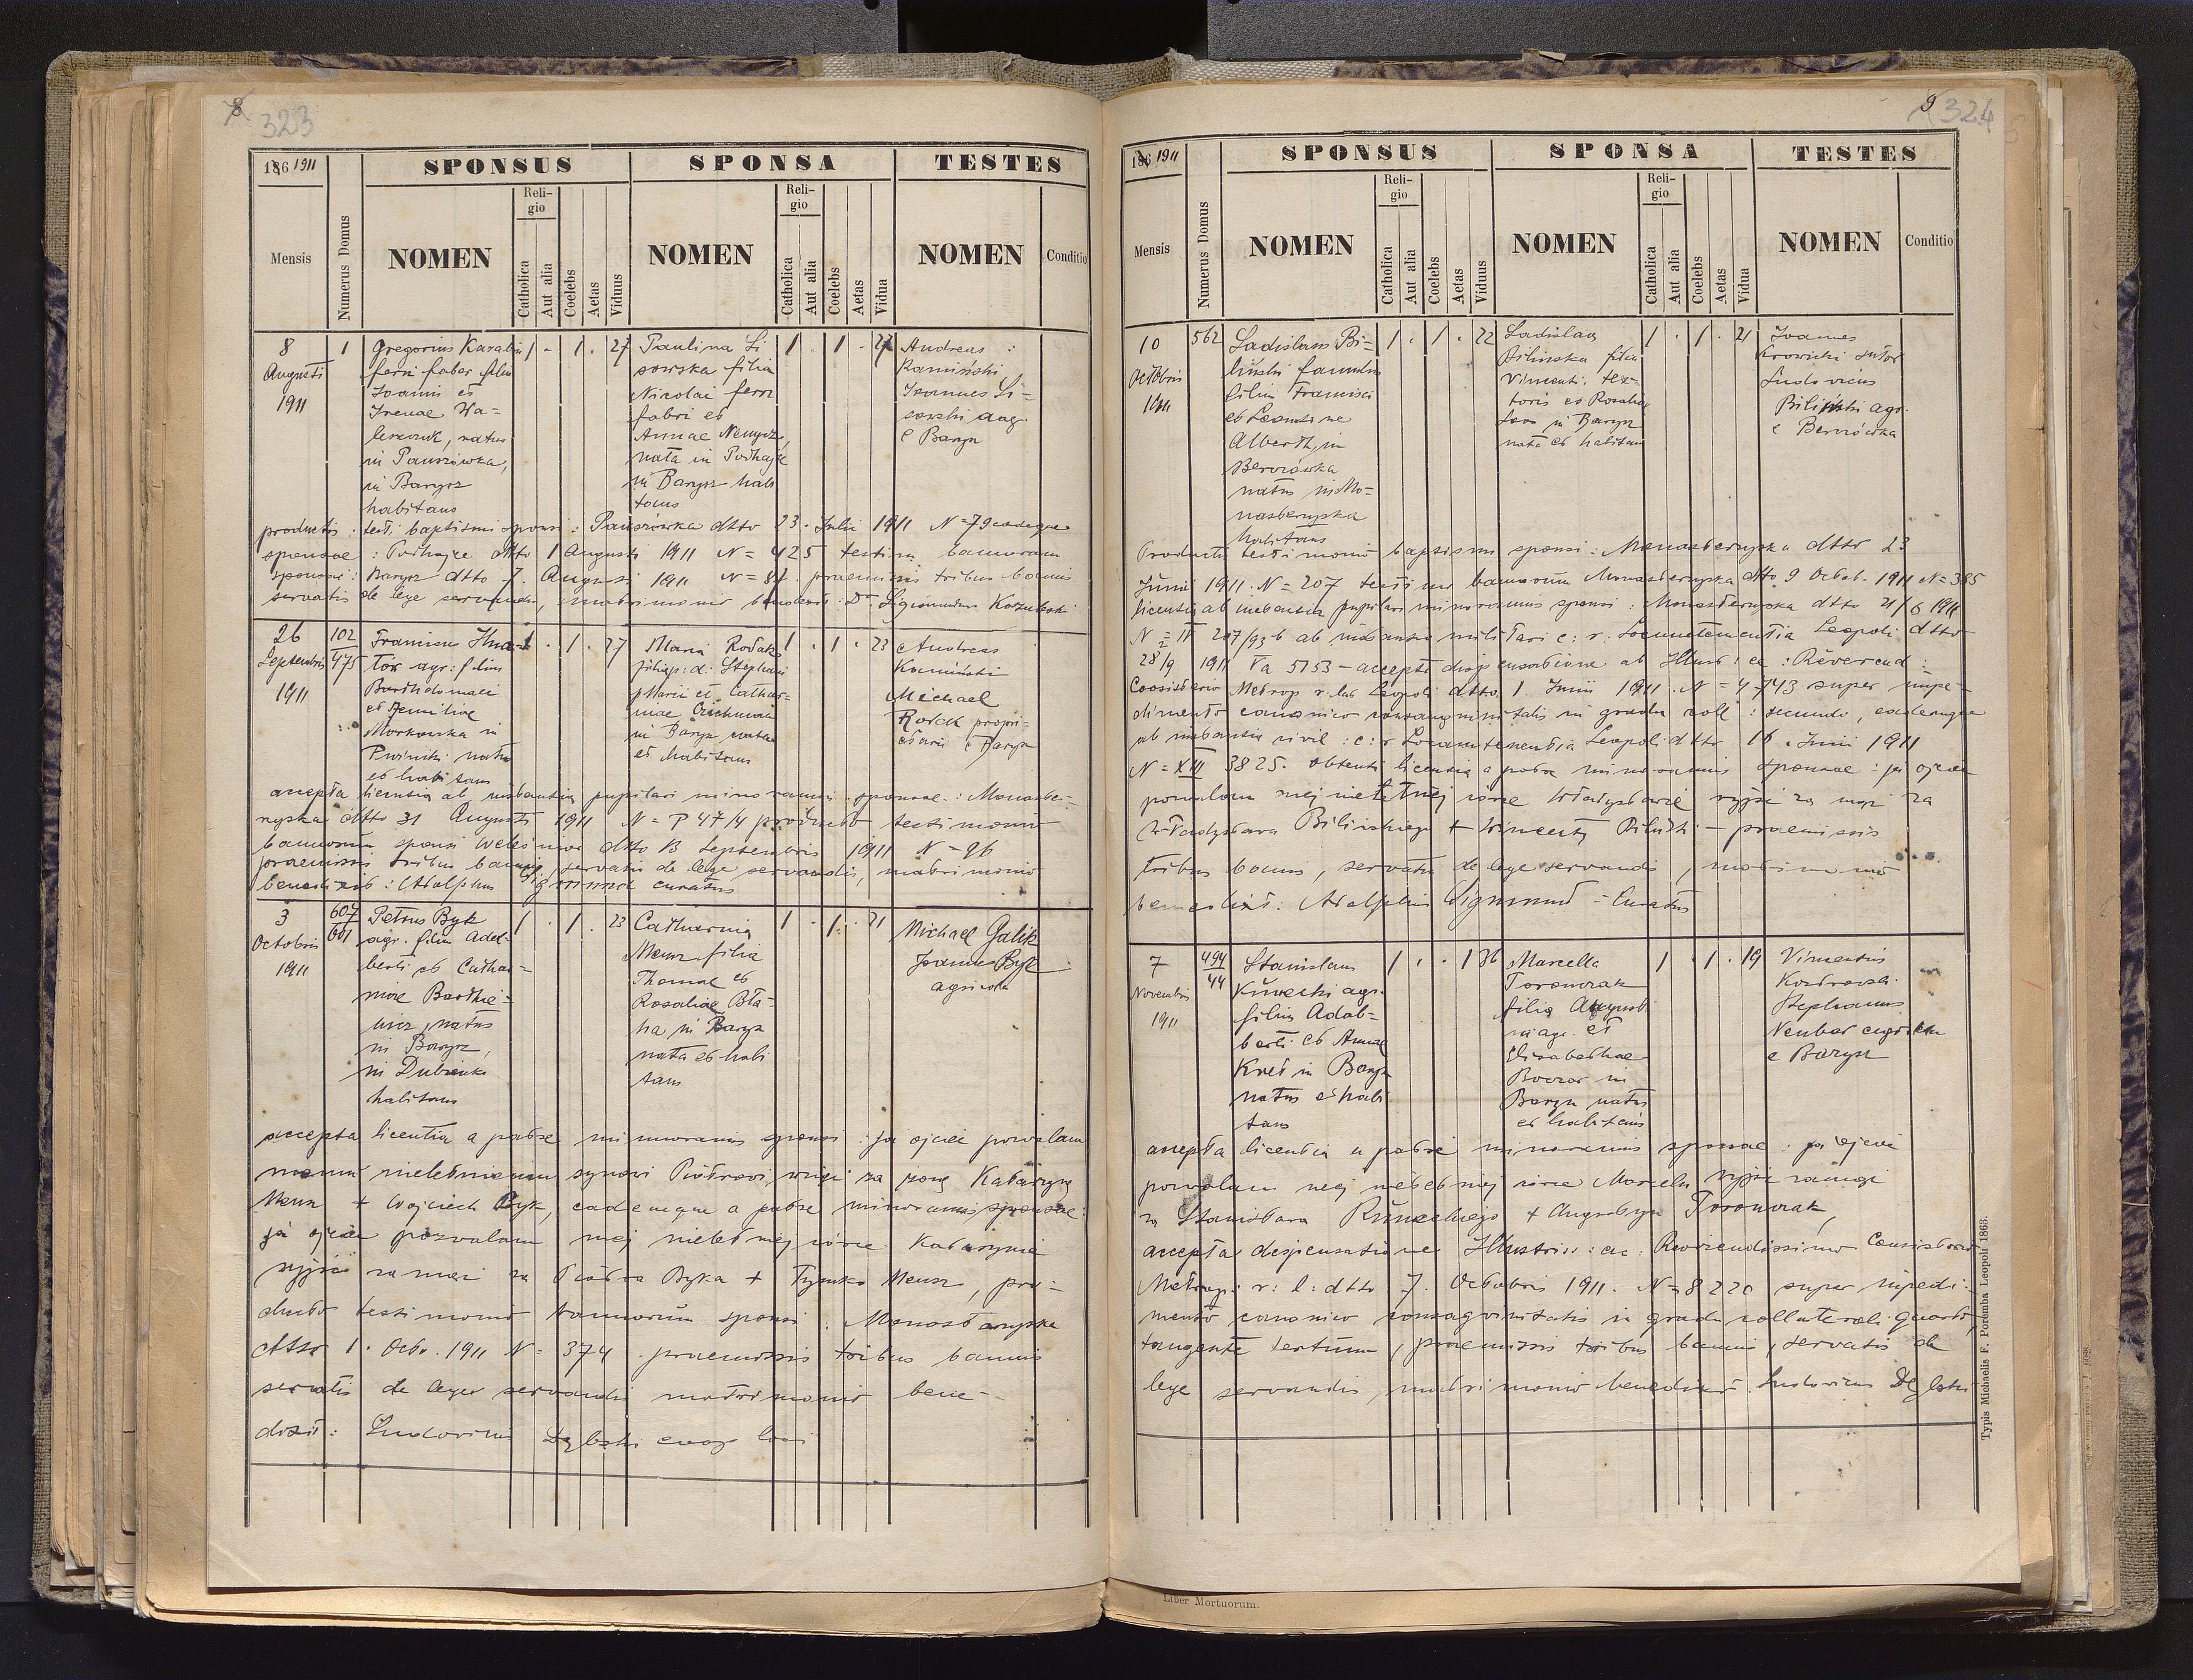 8 323
186 1911
SPONSUS SPONSA TESTES
Mensis
Numerus Domus
NOMEN
Religio
Catholica
Aut alia
Coelebs
Aetas
Viduus
NOMEN
Religio
Catholica
Aut alia
Coelebs
Aetas
Vidua
NOMEN
Conditio
8
Augusti
1911
1
Gregorius
ferri faber filius
Joannis et
Irenae Wa=
leszczuk, natus
in Pauszówka,
in Barysz
habitans
1 - 1 . 27
Paulina Li
sowska filia
Nicolai ferri
fabri et
Annae
nata in Podhajce
in Barysz habi
tans
1 . 1 - 27
Andreas
Kamiński
Joannes Li=
sowski agr.
e Barysz
productis: testi. baptismi sponsi: Pauszówka dtto 23. Julii 1911 N=79 eodemque
sponsae: Podhajce dtto 1 Augusti 1911 N= 425 testim. bannorum
sponsi: Barysz dtto 7. Augusti 1911 N= 87. praemissis tribus bannis
servatis de lege servandis, matrimonio benedixit: Dr Sigismundus
26
Septembris
1911
102
475
Franciscus
agr: filius
Bartholomaei
et
Morkowska in
natus
et habitans
1 . 1 . 27
Maria Rodak
filia p: d: Stephani
et Cathar=
inae
in Barysz nata
et habitans
1 . 1 . 23
Andreas
Kamiński
Michael
Rodak propri=
etarii e Barysz
accepta licentia ab instantia pupilari minorennis sponsae: Monaste=
ryska dtto 31 Augusti 1911 N= P 47/4 producto testimonio
bannorum sponsi dtto 13 Septembris 1911 N= 96
praemissis tribus bannis, servatis de lege servandis, matrimonio
benedixit: Adolphus Sigmund curatus
3
Octobris
1911
607
601
Petrus Byk
agr. filius Adal-
berti et Cathar=
inae Bartkie=
wicz, natus
in Barysz,
in Dubienko
habitans
1 . 1 . 23
Catharina
Mensz filia
Thomae et
Rosaliae Bła=
ha in Barysz
nata et habi
tans
1 . 1 . 21
Michael Galik
Joannes Byk
agricola
accepta licentia a patre minorennis sponsi: ja ojciec pozwalam
memu nieletniemu synowi Piotrowi, wziąć za żonę Katarzynę
Mensz + Wojciech Byk, eademque a patre minorennis sponsae:
ja ojciec pozwalam mej nieletniej córce Katarzynie
wyjść za mąż za Piotra Byka + Tymko Mensz, pro=
ducto testimonio bannorum sponsi: Monasteryska
dtto 1. Octo. 1911 N= 374. praemissis tribus bannis
servatis de lege servandis matrimonio bene-
dixit: Ludovicus Dębski loci
9 324
186 1911
SPONSUS SPONSA TESTES
Mensis
Numerus Domus
NOMEN
Religio
Catholica
Aut alia
Coelebs
Aetas
Viduus
NOMEN
Religio
Catholica
Aut alia
Coelebs
Aetas
Vidua
NOMEN
Conditio
10
Octobris
1911
562
Ladislaus Bi=
liński famulus
filius Francisci
et Leontinae
Alberth, in
Berezówka
natus in Mo=
nasteryska
habitans
1 . 1 . 22
Ladislaa
Bilinska filia
Vincentii tex=
toris et Rosaliae
in Barysz
nata et habitans
1 . 1 . 21
Joannes
Krowicki sutor
Ludovicus
Biliński agr.
e Berezówka
Producto testimonio baptismi sponsi: Monasteryska dtto 23
Junii 1911. N= 207 testimo bannorum Monasteryska dtto 9 Octob. 1911 N= 385
licentia ab instantia pupilari minorennis sponsi: Monasteryska dtto 21/6 1911
ab instantia militari c: r: Locumtenentia Leopoli dtto
28/9 1911 Va 5153 - accepta dispensatione ab Illust: ac: Reverend:
Consistorio Metrop r. lat Leopoli dtto 1. Junii 1911. N= 4743 super impe=
dimento canonico consanguinitatis in gradu coll: secundo, eademque
ab instantia civil: c: r Locumtenentia Leopoli dtto 16. Junii 1911
N= XIII 3825. obtenta licentia a patre minorennis sponsae: ja ojciec
pozwalam mej nieletniej córce Władysławie wyjść za mąż za
Władysława Bilińskiego + Wincenty Biliński - praemissis
tribus bannis, servatis de lege servandis, matrimonio
benedixit: Adolphus Sigmund - Curatus
7
Novembris
1911
494
44
Stanislaus
agr.
filius Adal=
berti et Annae
in Barysz
natus et habi
tans
1 . . 1 36
Marcella
Toronczak
filia Augusti
ni agr. et
Elisabethae
in
Barysz nata
et habitans
1 . 1 . 19
Vincentius
Stephanus
Neubar
e Barysz
accepta licentia a patre minorennis sponsae: ja ojciec
pozwalam mej nieletniej córce Marceli wyjść za mąż
za Stanisława + Augustyn Toronczak,
accepta dispensatione Illustriss: ac: Reverendissimo Consistorio
Metrop: r: l: dtto 7. Octobris 1911. N= 8220 super impedi=
mento canonico consangvinitatis in gradu collaterali quarto,
tangente tertium, praemissis tribus bannis, servatis de
lege servandis, matrimonio benedixit Ludovicus Dębski
Typis Michaelis F. Poremba Leopoli 1863.
Liber Mortuorum.